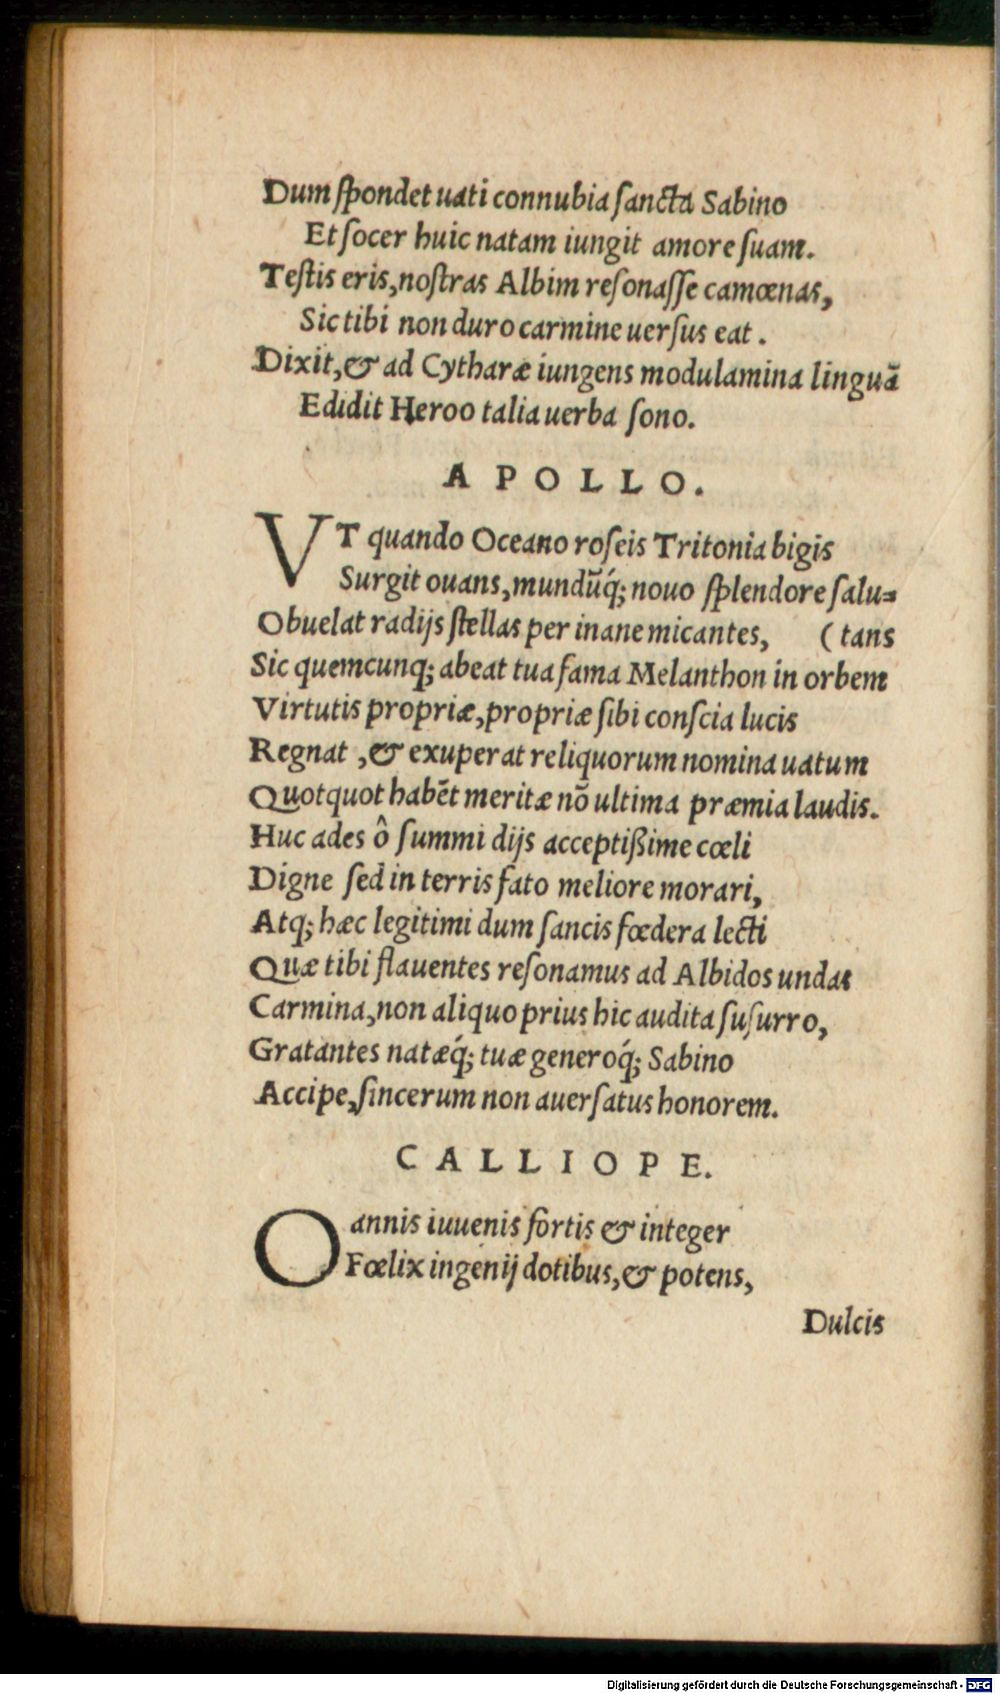 Dum ſpondet uati connubia ſancta Sabino
Et ſocer huic natam iungit amore ſuam.
Teſtis eris, noſtras Albim reſonaſſe camœnas,
Sic tibi non duro carmine uerſus eat.
Dixit, & ad Cytharæ iungens modulamina linguā
Edidit Heroo talia uerba ſono.
APOLLO.
VT quando Oceano roſeis Tritonia bigis
Surgit ouans, mundūq́; nouo ſplendore ſalu=
Obuelat radijs ſtellas per inane micantes, (tans
Sic quemcunq; abeat tua fama Melanthon in orbem
Virtutis propriæ, propriæ ſibi conſcia lucis
Regnat, & exuperat reliquorum nomina uatum
Quotquot habēt meritæ nō ultima præmia laudis.
Huc ades ô ſummi dijs acceptißime cœli
Digne ſed in terris fato meliore morari,
Atq; hæc legitimi dum ſancis fœdera lecti
Quæ tibi flauentes reſonamus ad Albidos undas
Carmina, non aliquo prius hic audita ſuſurro,
Gratantes natæq́; tuæ generoq́; Sabino
Accipe, ſincerum non auerſatus honorem.
CALLIOPE.
Oannis iuuenis fortis & integer
Fœlix ingenij dotibus, & potens,
Dulcis
Digitalisierung gefördert durch die Deutsche Forschungsgemeinschaft - DFG